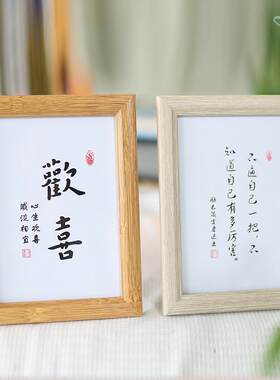 歡喜
心生欢喜
淡相宜
不逼自己一把，不
知道自己有多厉害。